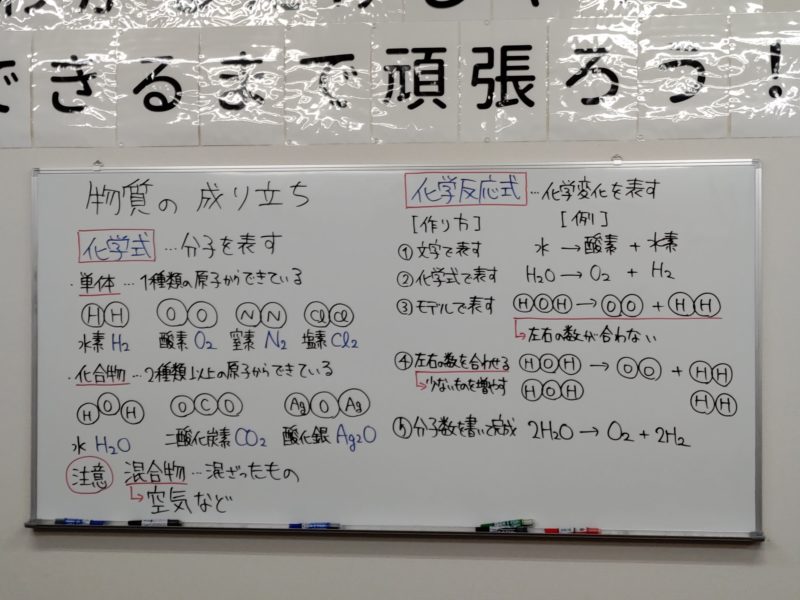 できるまで頑張ろう！
物質の成り立ち
化学式…分子を表す
・単体…1種類の原子からできている
HH OO NN ClCl
水素H₂ 酸素O₂ 窒素N₂ 塩素Cl₂
・化合物…2種類以上の原子からできている
HOH OCO AgOAg
水H₂O 二酸化炭素CO₂ 酸化銀Ag₂O
注意 混合物…混ざったもの
↳空気など
化学反応式…化学変化を表す
[作り方] [例]
①文字で表す 水→酸素+水素
②化学式で表す H₂O→O₂+H₂
③モデルで表す HOH→OO+HH
↳左右の数が合わない
④左右の数を合わせる HOH→OO+HH
↳少ないものを増やす HOH HH
⑤分子数を書いて完成 2H₂O→O₂+2H₂